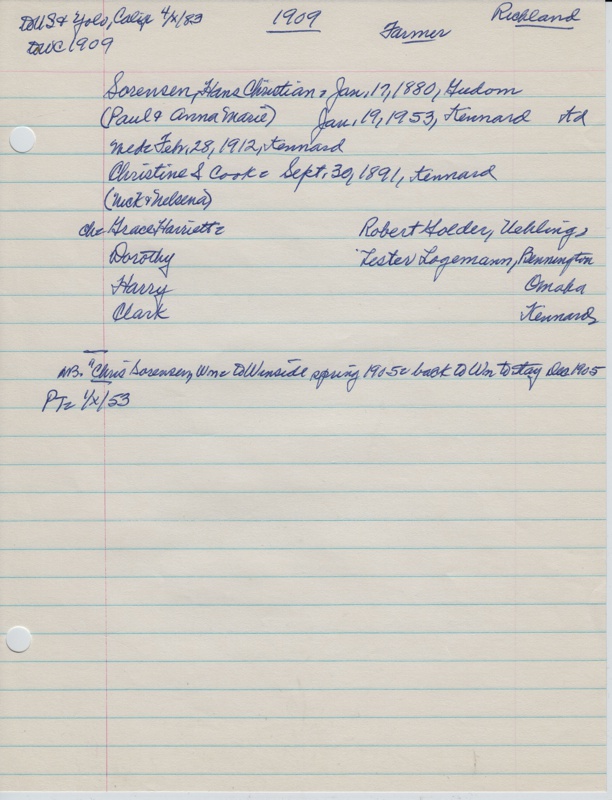 DUS & Yolo, Calif 4/X/83 1909 Farmer Richland
DWC 1909
Sorensen, Hans Christian = Jan. 17, 1880, Gudom
(Paul & Anna Marie) Jan. 19, 1953, Kennard Ad
Med = Feb. 28, 1912, Kennard
Christine S Cook = Sept. 30, 1891, Kennard
(Nick & Nelsena)
ch = Grace Harriett = Robert Golder, Uehling,
Dorothy Lester Logemann, Bennington
Harry Omaha
Clark Kennard
NB. "Chris Sorensen, Wn = to Winside spring 1905 = back to Wn to stay Dec 1905
PT = 1/X/53